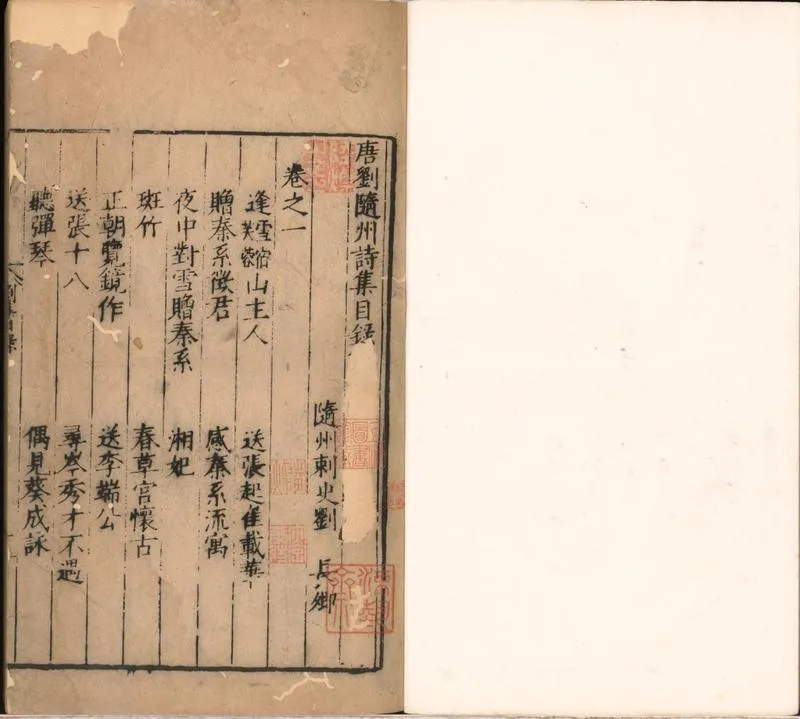 唐劉隨州詩集目錄
隨州刺史劉 長卿
卷之一
逢雪宿芙蓉山主人 送張起崔載華
贈秦系徵君 感秦系流寓
夜中對雪贈秦系 湘妃
斑竹 春草宮懷古
正朝覽鏡作 送李端公
送張十八 尋岑秀才不遇
聽彈琴 偶見葵成詠